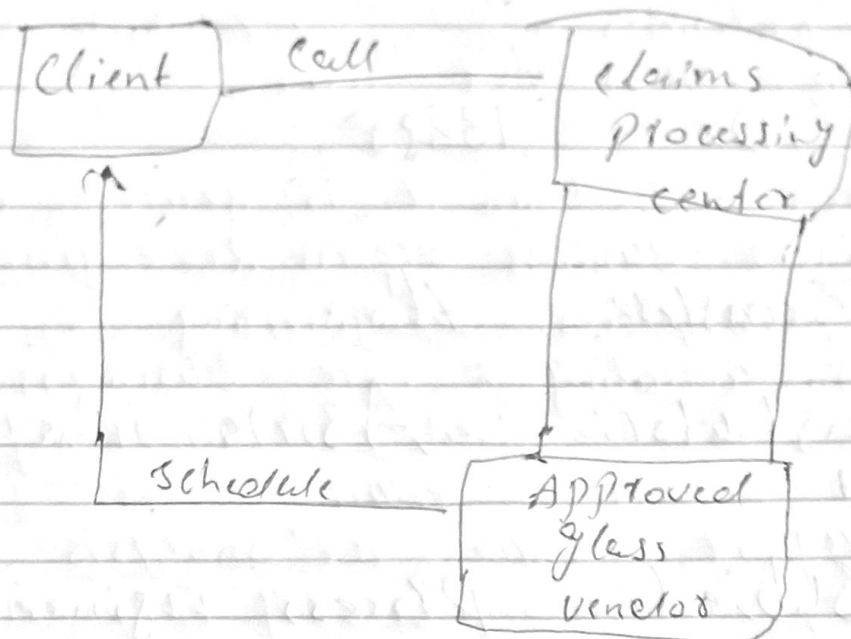 Client
Call
Claims
processing
center
Schedule
Approved
glass
vendor